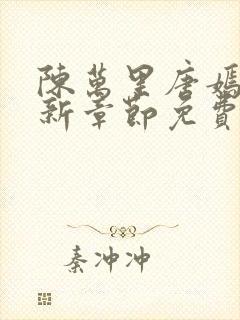 陳萬里唐嫣
新章節免費
秦沖沖